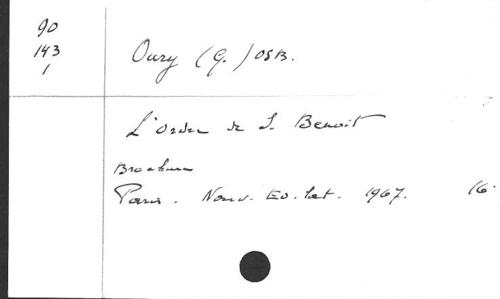 90
143
1
Oury (G.) OSB.
L'Ordre de S. Benoit
Brochure
Paris. Nouv. Ed. lat. 1967. 16.